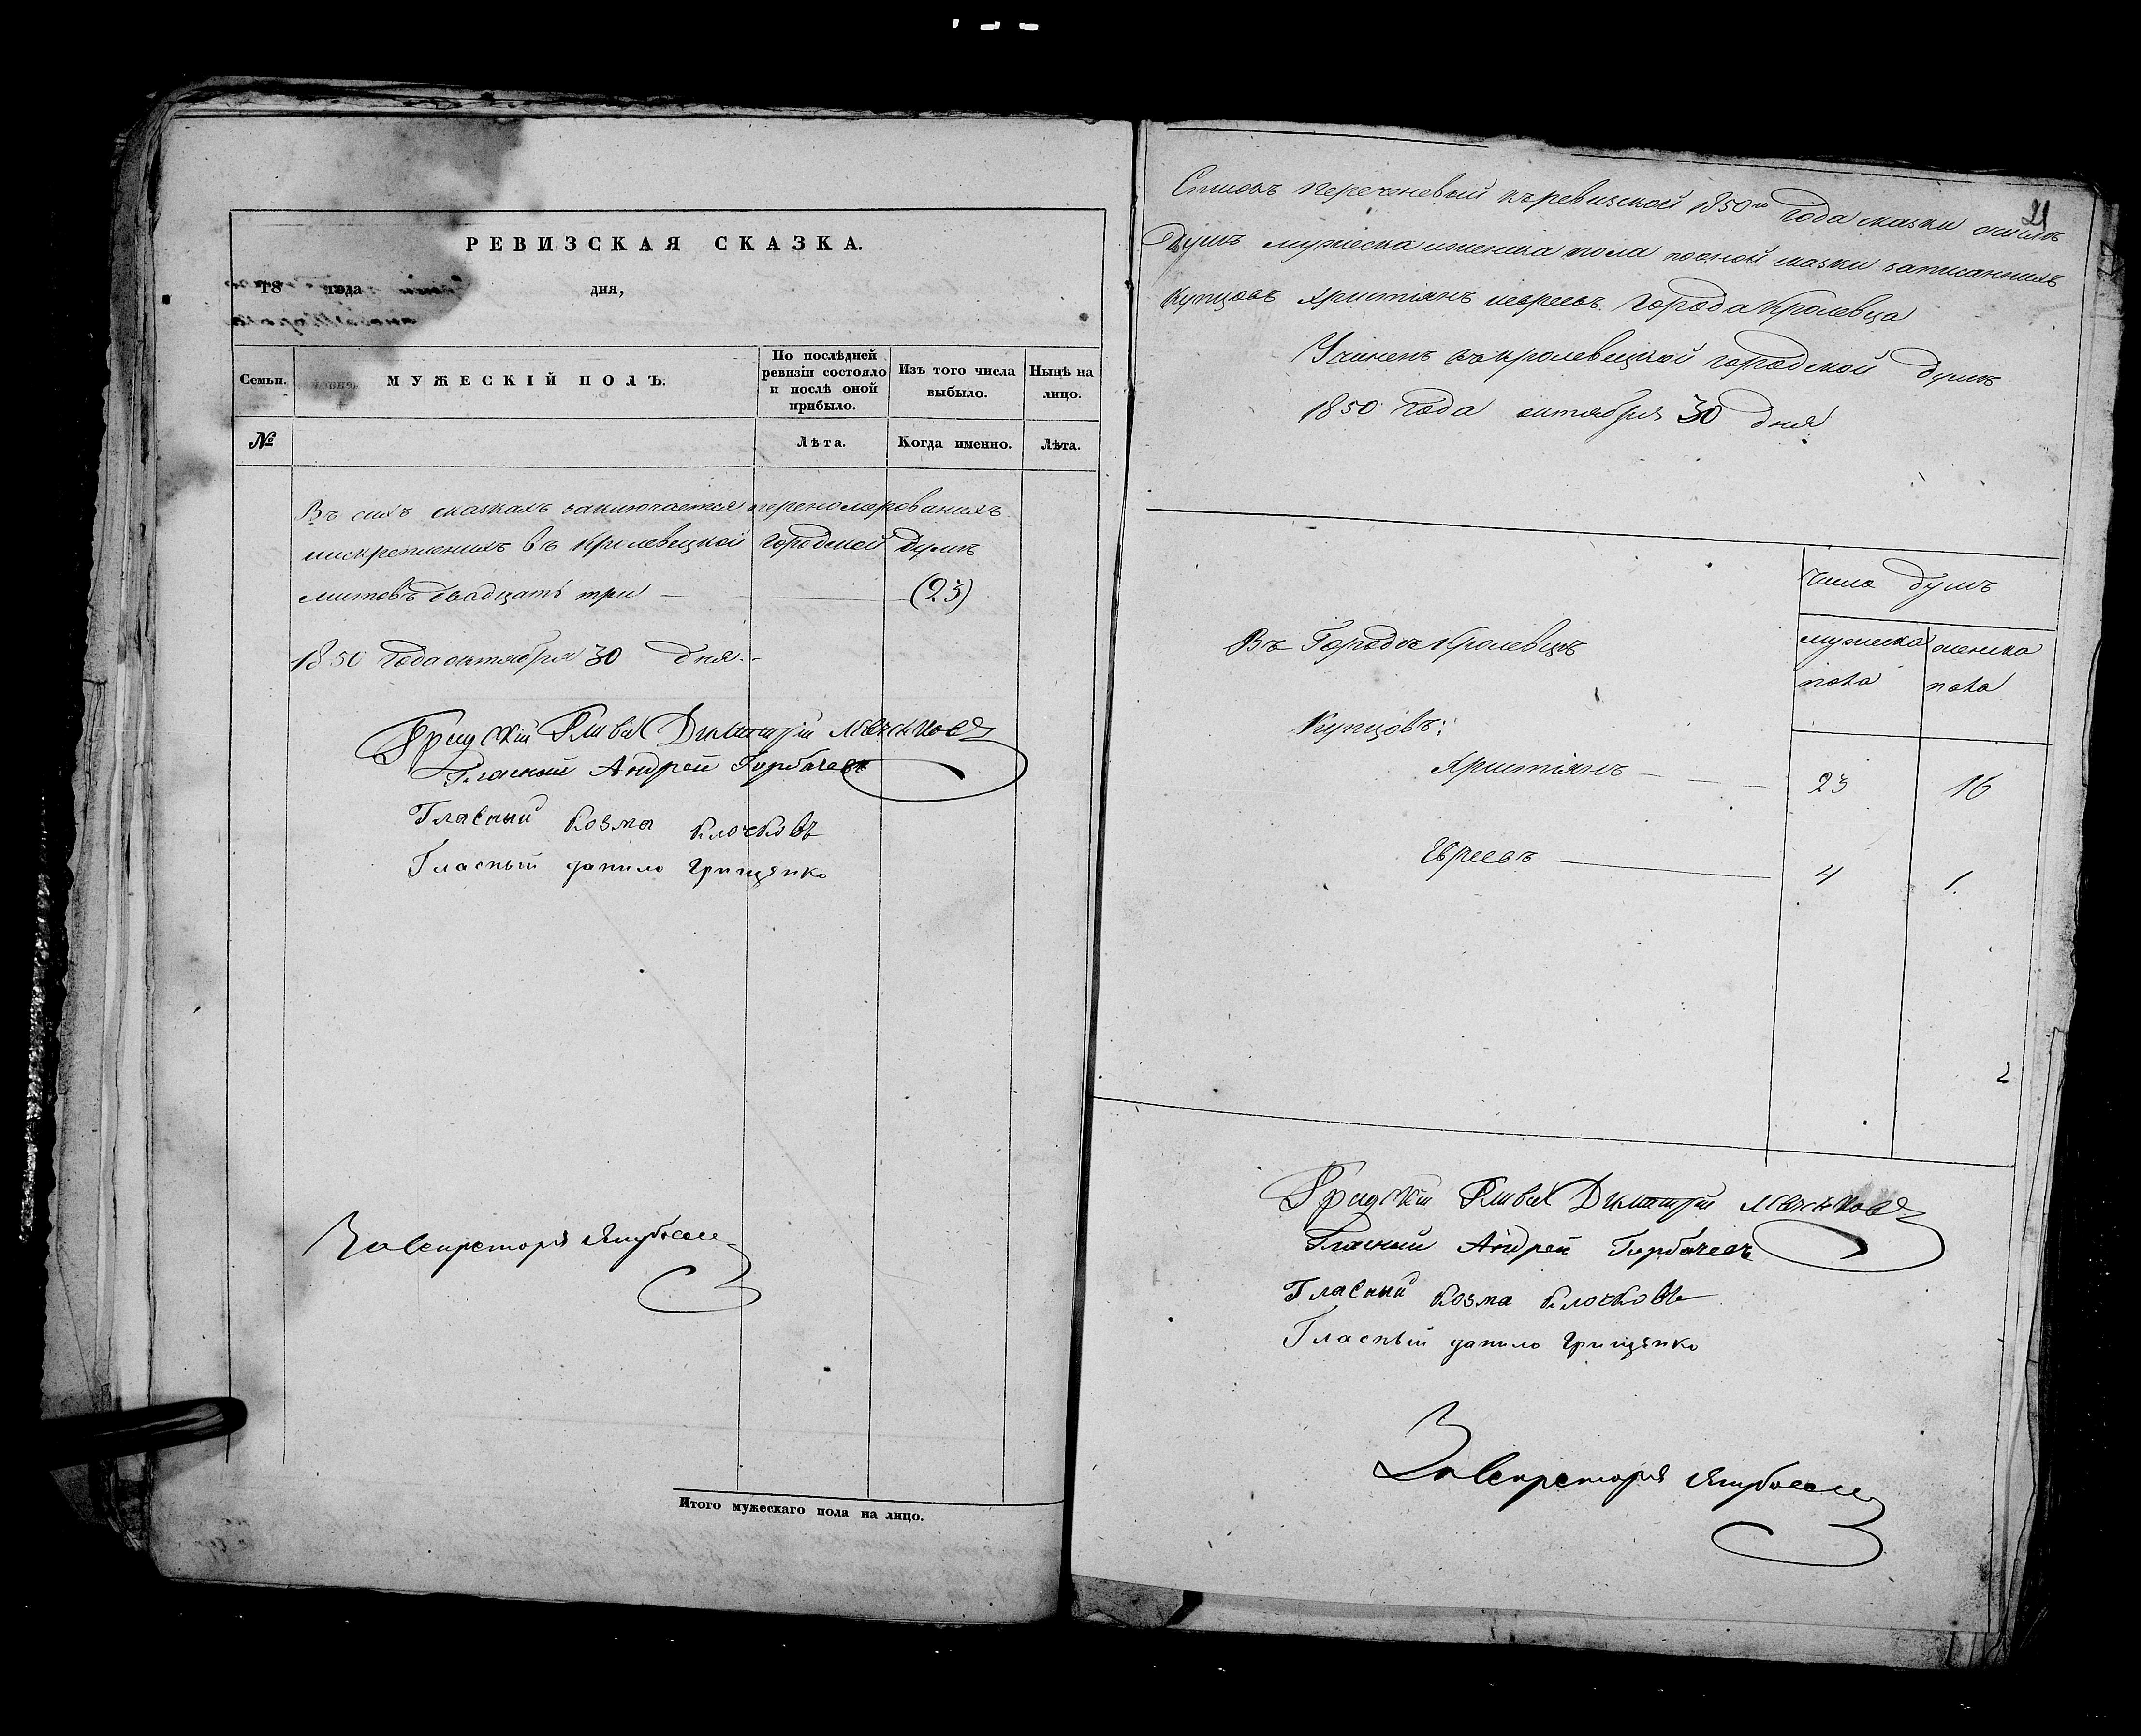 РЕВИЗСКАЯ СКАЗКА.
18 года дня,
Семьи.
МУЖЕСКІЙ ПОЛЪ.
По послѣдней
ревизіи состояло
и послѣ оной
прибыло.
Изъ того числа
выбыло.
Нынѣ на
лицо.
№
Лѣта.
Когда именно.
Лѣта.
Въ сихъ сказкахъ заключается перенумерованихъ
искрепленихъ въ Кролевецкой городской Думѣ
листовъ двадцать три — (23)
1850 года октября 30 дня.
Градскій Глава Димитрій
Гласный Андрей Горбачевъ
Гласный Козма Клочковъ
Гласный данило Грищенко
За Секретаря
Итого мужескаго пола на лицо.
21
Списокъ перечневый къ ревизской 1850го года сказки очислѣ
Душъ мужеска иженска пола пооной сказки записанныхъ
купцовъ христіянъ иевреевъ города Кролевца
Учиненъ въ кролевецкой городской думѣ
1850 года октября 30 дня
Число душъ
мужеска
пола
женска
пола
Въ Городѣ Кролевцѣ
Купцовъ:
Христіянъ — 23 16
Евреевъ — 4 1.
Градскій Глава Димитрій
Гласный Андрей Горбачевъ
Гласный Козма Клочковъ
Гласный данило Грищенко
За Секретаря